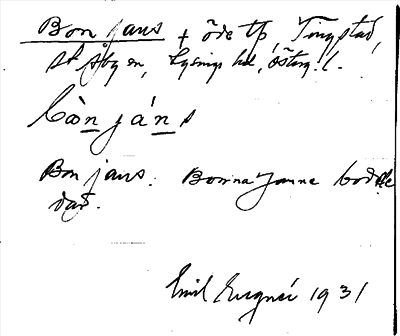 Bonjans + öde tp, Tingstad,
st. Åby sn, Lysings hd, Östergl.
bòǹjáns
Bonjans. Bonna Janne bodde
där.
Emil 1931